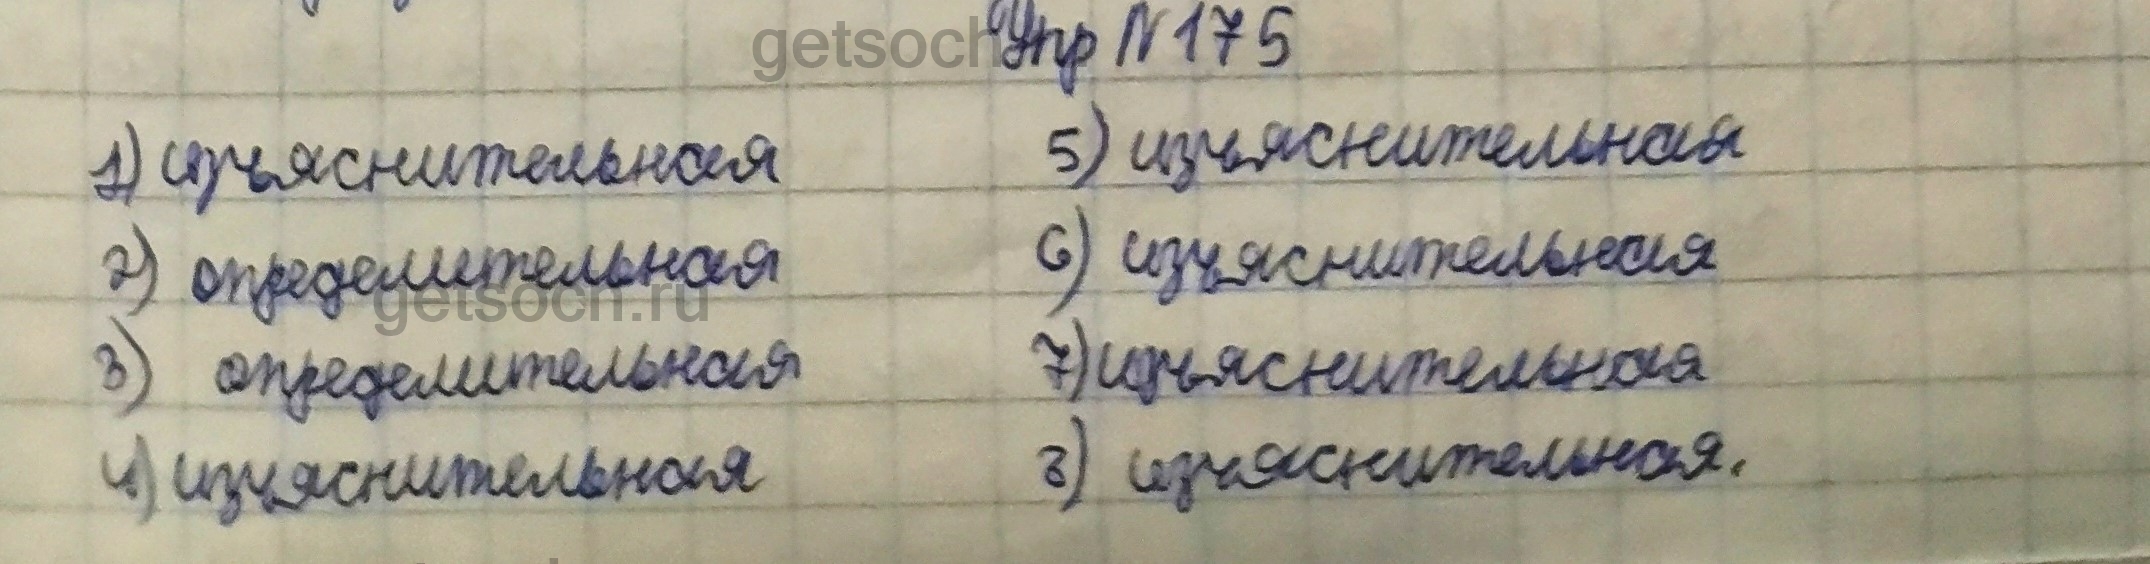 Упр N 175
1) изъяснительная
2) определительная
3) определительная
4) изъяснительная
5) изъяснительная
6) изъяснительная
7) изъяснительная
8) изъяснительная.
getsoch
getsoch.ru